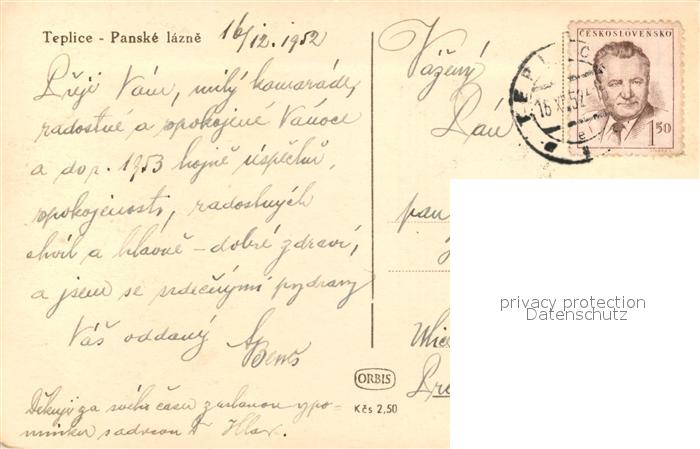 Teplice - Panské lázně
16/12. 1952
Přeji Vám, milý kamaráde,
radostné a spokojené Vánoce
a do r. 1953 hojně úspěchů,
spokojenosti, radostných
chvil a hlavně - dobré zdraví,
a jsem se srdečnými pozdravy
Váš oddaný
Děkuji za svého času zaslanou vzpo-
mínku s adresou
Vážený
Pán
pan
Ulice
ČESKOSLOVENSKO
1.50
TEPLICE
16.XII.52
ORBIS
Kčs 2,50
privacy protection
Datenschutz